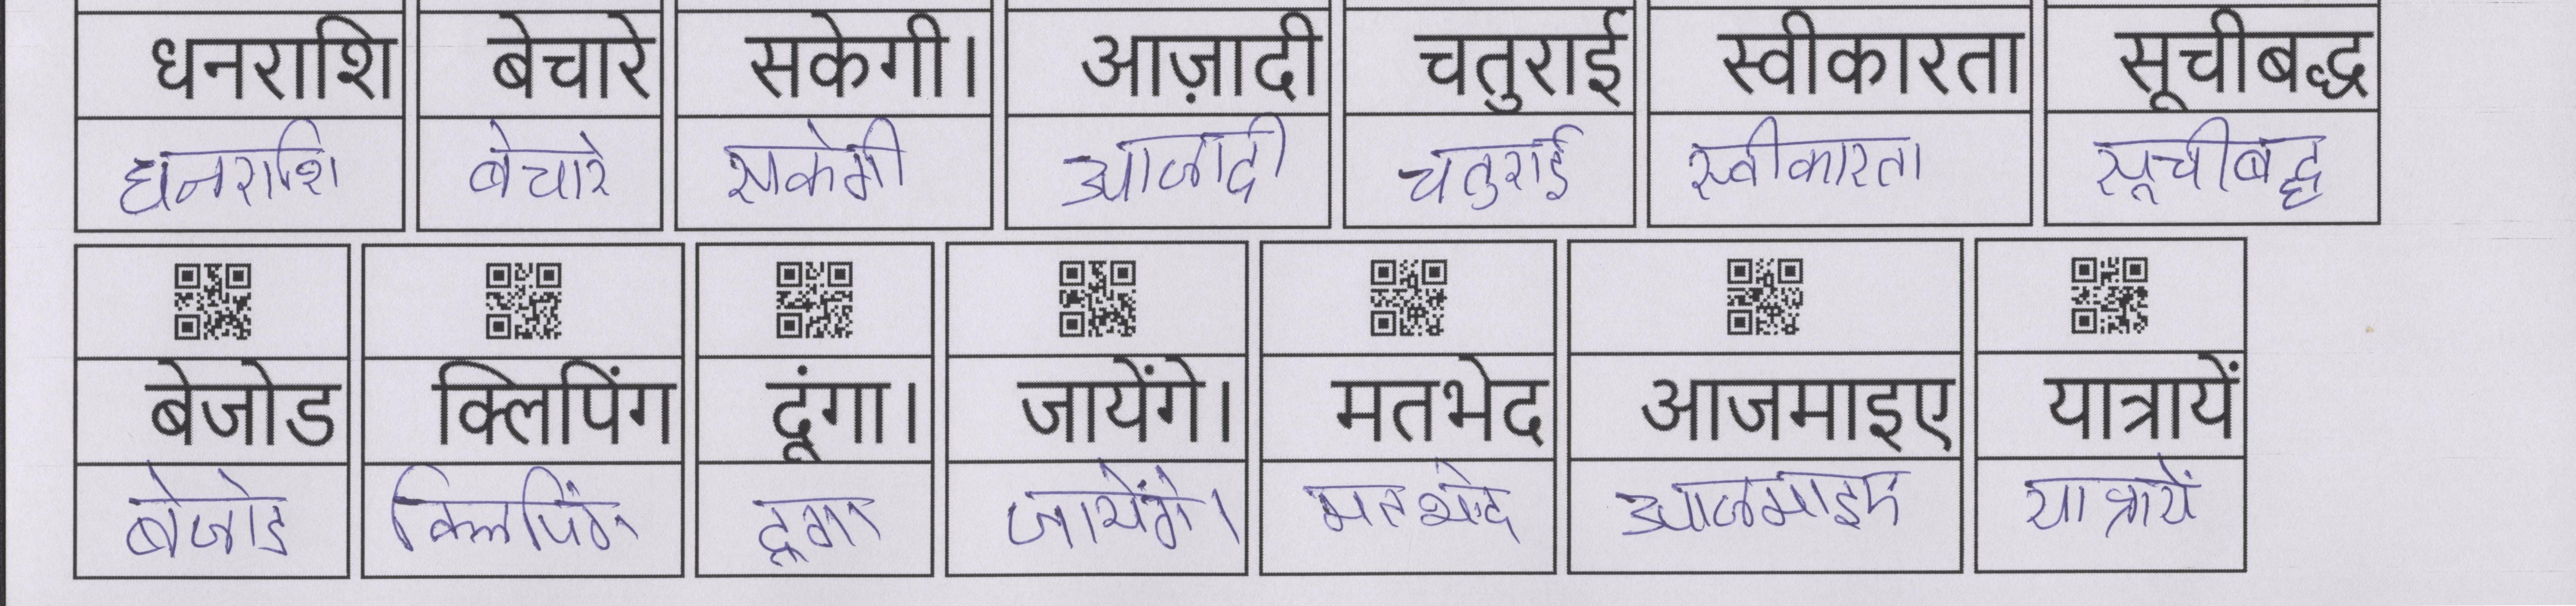 धनराशि बेचारे सकेगी। आज़ादी चतुराई स्वीकारता सूचीबद्ध
धनराशि बेचारे सकेगी आजादी चतुराई स्वीकारता सूचीबद्ध
बेजोड क्लिपिंग दूंगा। जायेंगे। मतभेद आजमाइए यात्रायें
बेजोड क्लिपिंग दूगा जायेंगे। मतभेद आजमाइए यात्रायें